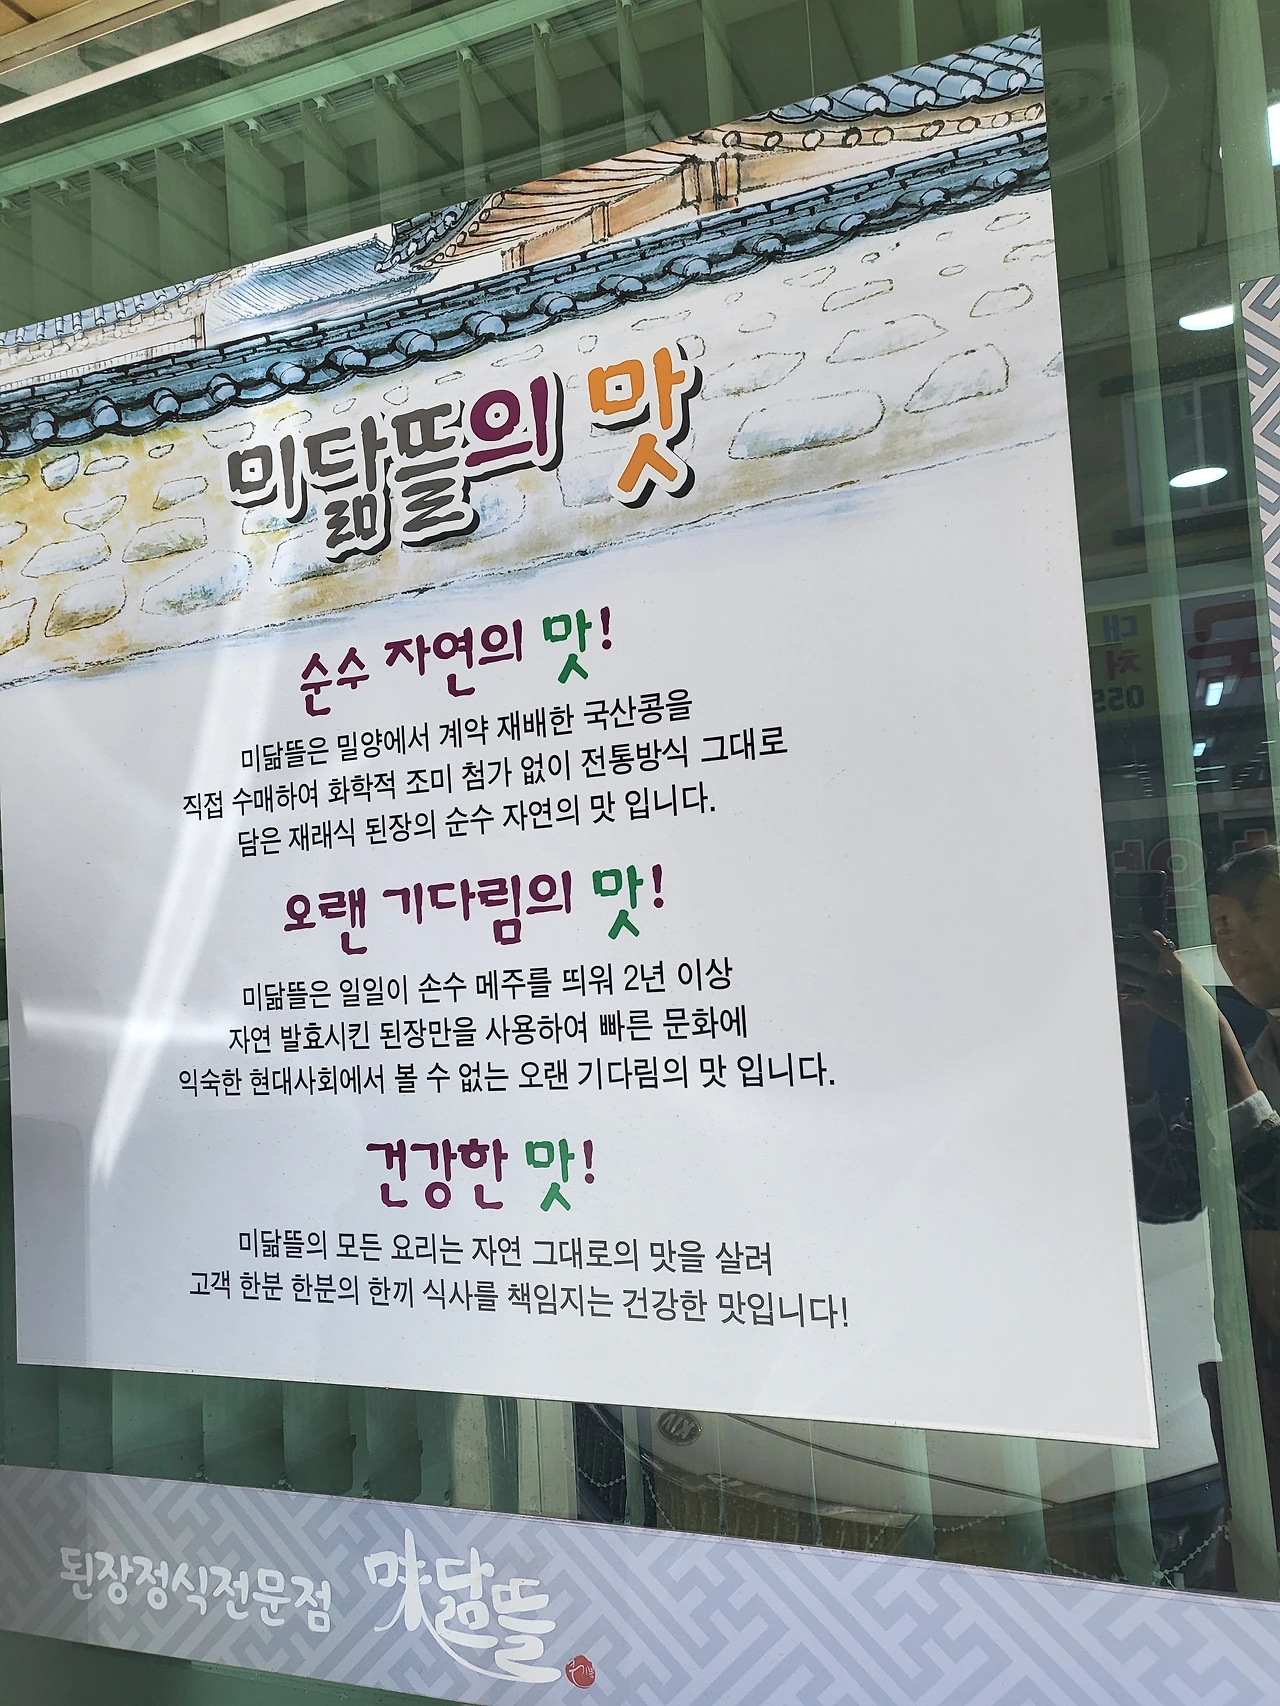 미닮뜰의 맛
순수 자연의 맛!
미닮뜰은 밀양에서 계약 재배한 국산콩을
직접 수매하여 화학적 조미 첨가 없이 전통방식 그대로
담은 재래식 된장의 순수 자연의 맛 입니다.
오랜 기다림의 맛!
미닮뜰은 일일이 손수 메주를 띄워 2년 이상
자연 발효시킨 된장만을 사용하여 빠른 문화에
익숙한 현대사회에서 볼 수 없는 오랜 기다림의 맛 입니다.
건강한 맛!
미닮뜰의 모든 요리는 자연 그대로의 맛을 살려
고객 한분 한분의 한끼 식사를 책임지는 건강한 맛입니다!
된장정식전문점 味닮뜰